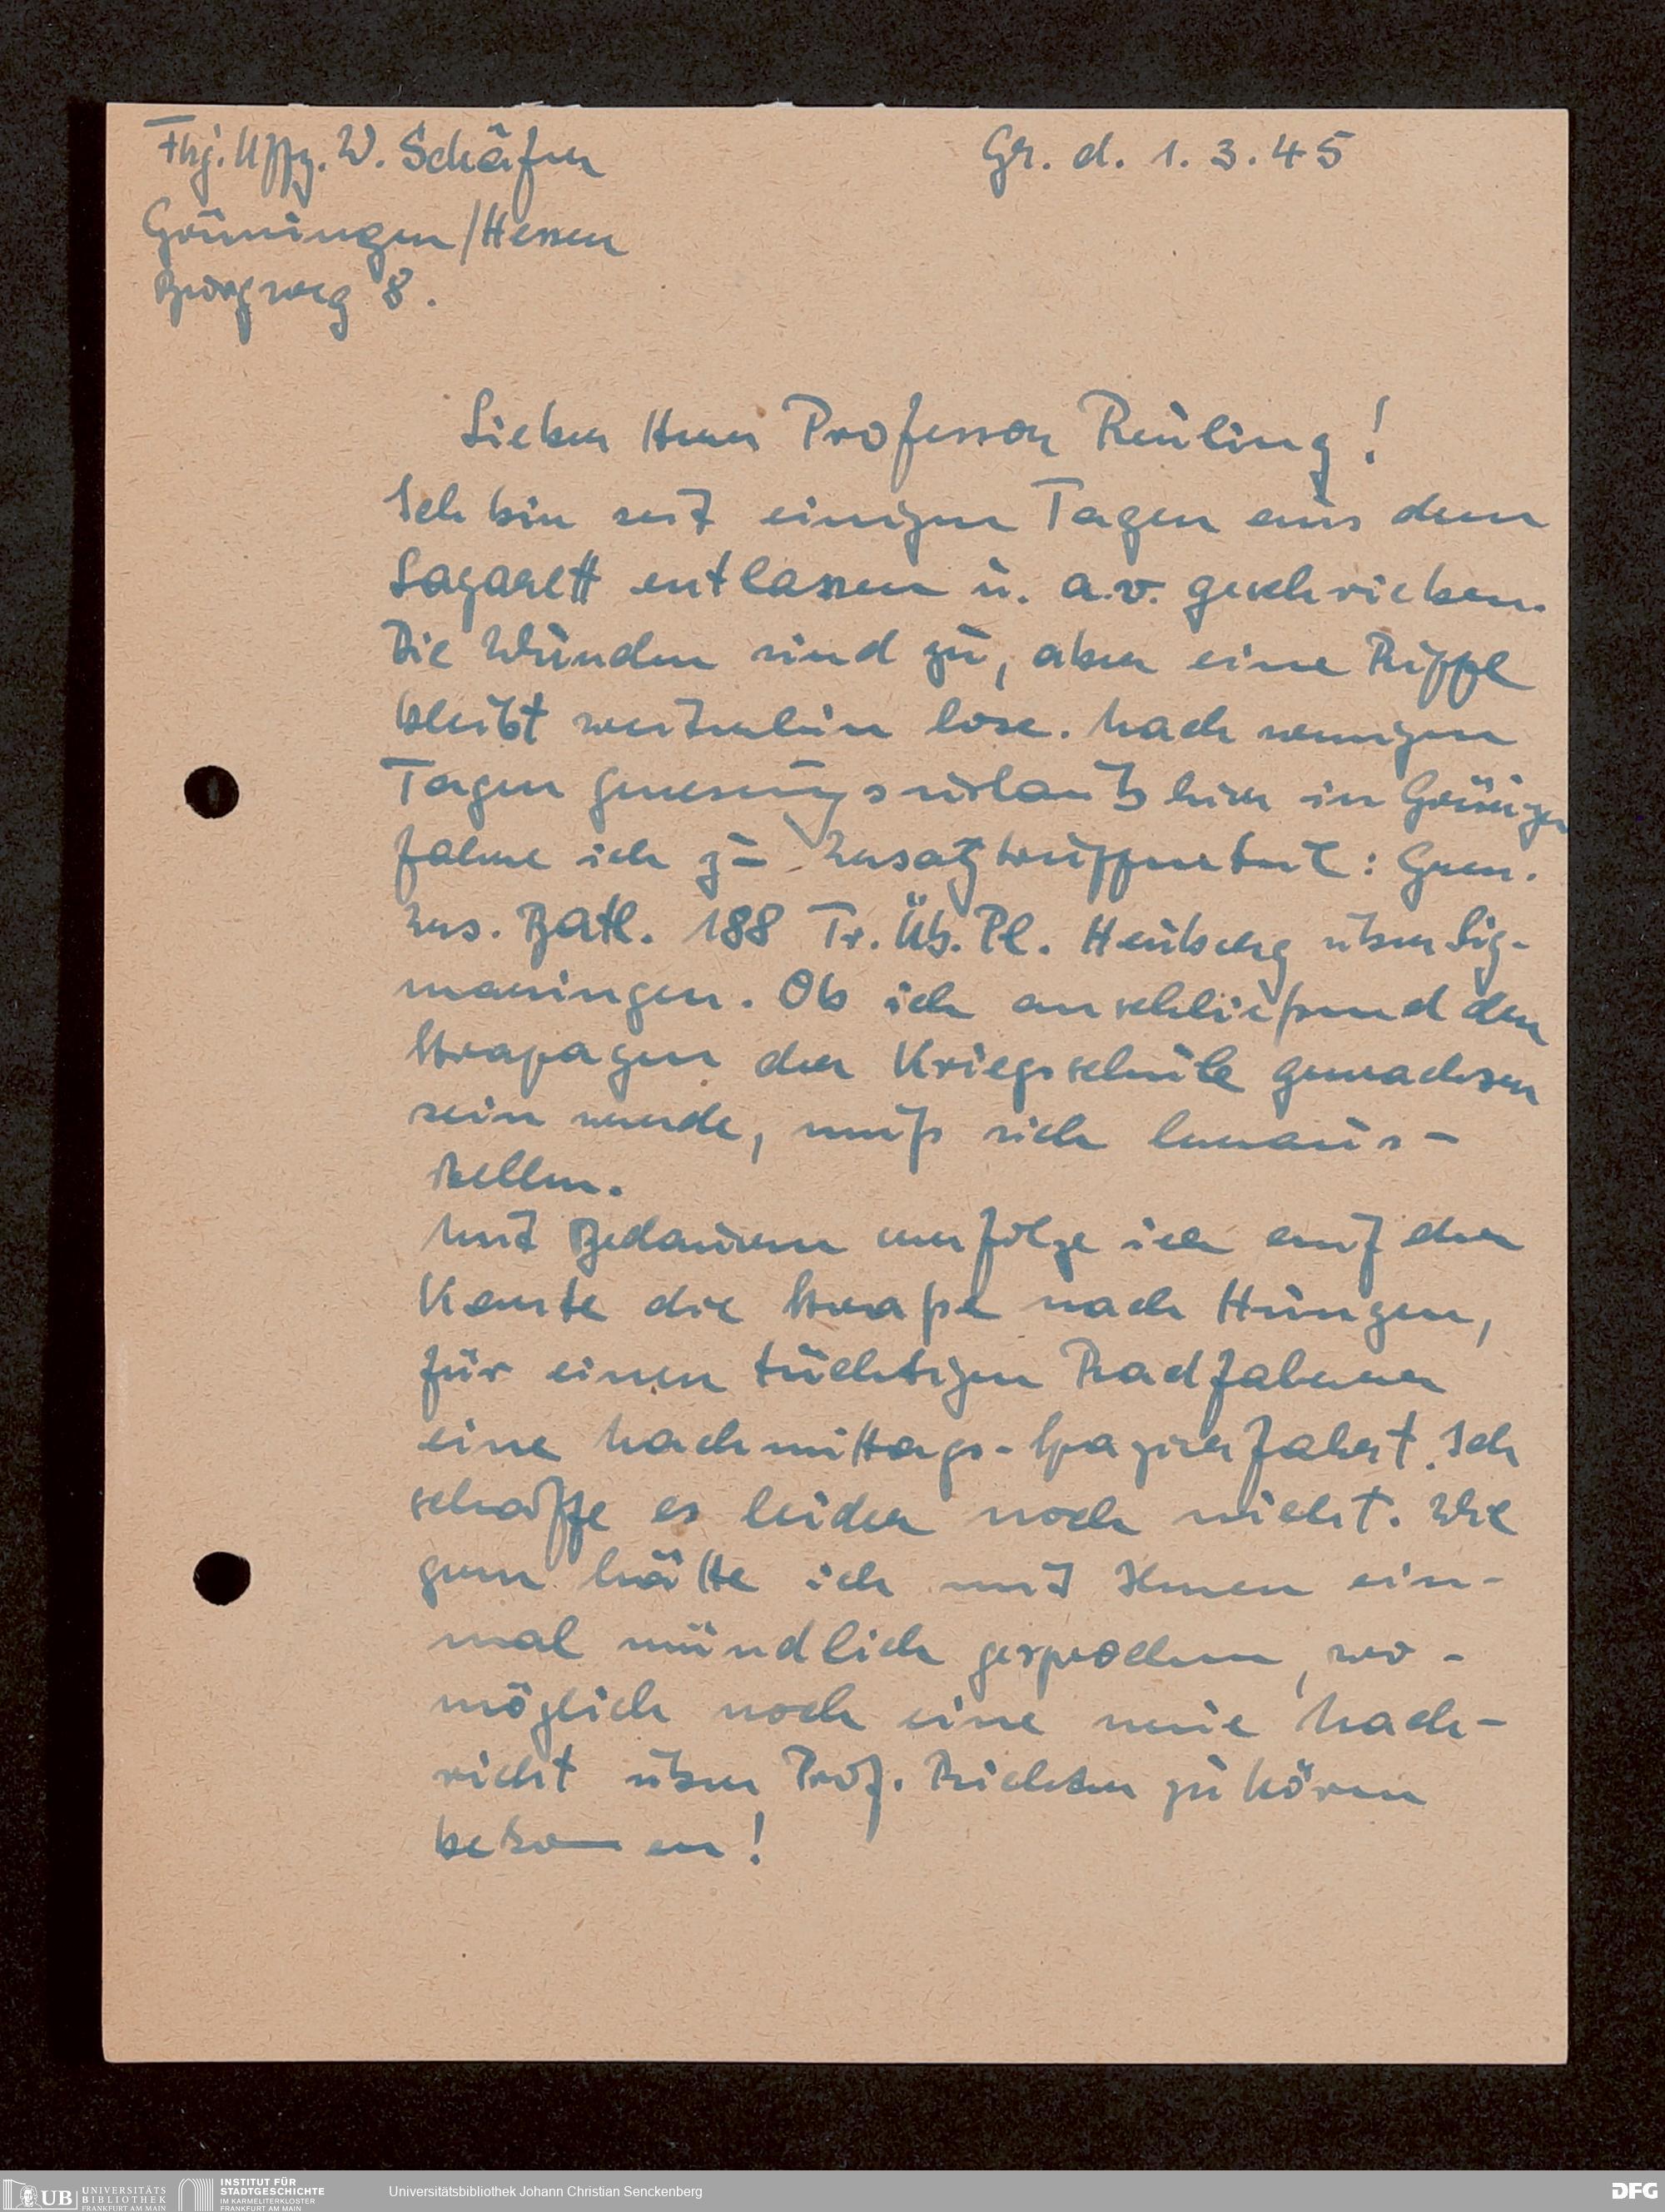 Fhj. Uffz. W. Schäfer
Gr. d. 1. 3. 45
Grüningen/Hessen
Burgweg 8.
Lieber Herr Professor Reuling!
Ich bin seit einigen Tagen aus dem
Lazarett entlassen u. a.v. geschrieben.
Die Wunden sind zu, aber eine Rippe
bleibt weiterhin lose. Nach wenigen
Tagen Genesungsurlaub hier in Grüningen
fahre ich zu Ersatztruppenteil: Gren.
Ers. Batl. 188 Tr. Üb. Pl. Heuberg über Sig-
maringen. Ob ich anschließend den
Strapazen der Kriegsschule gewachsen
sein werde, muß sich heraus-
stellen.
Mit Bedauern verfolge ich auf der
Karte die Straße nach Hungen,
für einen tüchtigen Radfahrer
eine Nachmittags-Spazierfahrt. Ich
schaffe es leider noch nicht. Wie
gern hätte ich mit Ihnen ein-
mal mündlich gesprochen, wo-
möglich noch eine neue Nach-
richt über Prof. Richter zu hören
bekomen!
UB UNIVERSITÄTS
BIBLIOTHEK
FRANKFURT AM MAIN
INSTITUT FÜR
STADTGESCHICHTE
IM KARMELITERKLOSTER
FRANKFURT AM MAIN
Universitätsbibliothek Johann Christian Senckenberg
DFG